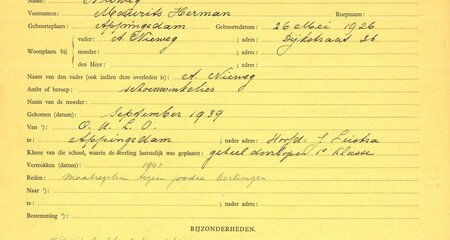 Naam: Nieweg
Voornamen: Mauritz Herman Roepnaam:
Geboorteplaats: Appingedam 26 Mei 1926
vader: A. Nieweg adres: Dijkstraat 36
Woonplaats bij moeder: adres:
den Heer: adres:
Naam van den vader (ook indien deze overleden is): A. Nieweg
Ambt of beroep: schoenwinkelier
Naam van de moeder:
Gekomen (datum): September 1939
Van ¹) O. U. L. O.
te Appingedam nader adres: Hoofd: J. Leistra
Klasse van de school, waarin de leerling laatstelijk was geplaatst: geheel doorlopen 1e klasse
Vertrokken (datum): 1941
Reden: Maatregelen tegen joodse leerlingen
Naar ¹): nader adres:
te nader adres:
Bestemming ²):
BIJZONDERHEDEN.